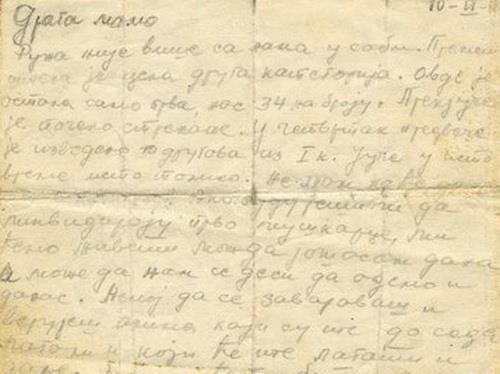 10-VI-
Драга мамо
Ружа није више са нама у соби. Премештена
је цела друга категорија. Овде је
остала само прва, нас 34 на броју. Прекјуче
је почело стрељање. У четвртак предвече
је изведено 10 другова из I к. Јуче у исто
време исто толико.
да
ликвидирају прво мушкарце, ми
ћемо живети можда још осам дана
а може да нам се деси да одемо и
данас. Немој да се завараваш и
верујеш онима који су те до сада
лагали и који ће те лагати и